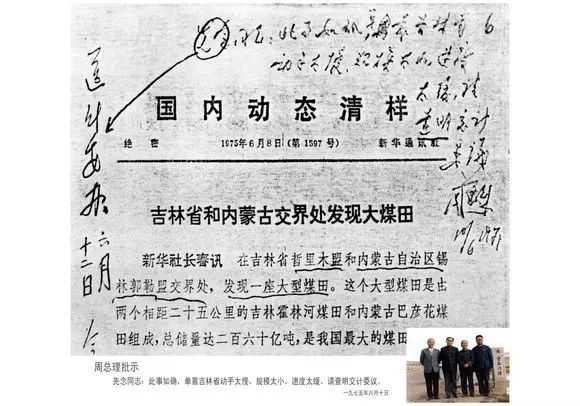 先念同志：此事如确，单靠吉林省
动手太慢，规模太小，速度
太缓，请
查明交计
委议
六月
十二日
国内动态清样
绝密 1975年6月8日（第1597号） 新华通讯社
吉林省和内蒙古交界处发现大煤田
新华社长春讯 在吉林省哲里木盟和内蒙古自治区锡
林郭勒盟交界处，发现一座大型煤田。这个大型煤田是由
两个相距二十五公里的吉林霍林河煤田和内蒙古巴彦花煤
田组成，总储量达二百六十亿吨，是我国最大的煤田
周总理批示
先念同志：此事如确，单靠吉林省动手太慢，规模太小，速度太缓，请查明交计委议。
一九七五年六月十日